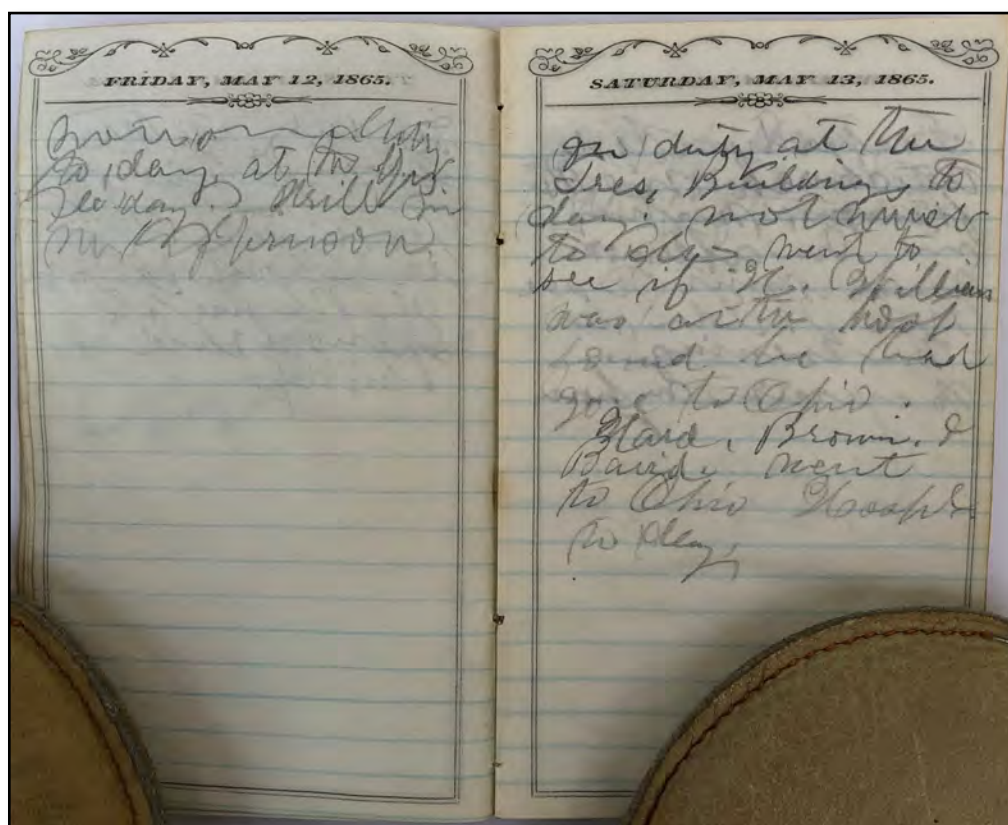 FRIDAY, MAY 12, 1865.
not on duty
to day, at the
Drill in
the Afternoon.
SATURDAY, MAY 13, 1865.
on duty at the
Tres, Building to
day. not much
to do went to
see if H. William
was at the hosp
found he had
gone to Ohio.
Brown, &
Baird. went
to Ohio
to day,